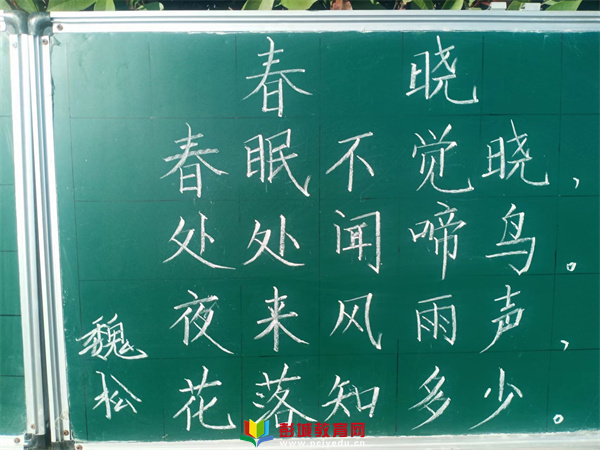 春晓
春眠不觉晓,
处处闻啼鸟。
夜来风雨声,
花落知多少。
魏松
彭城教育网
www.pcjyedu.cn